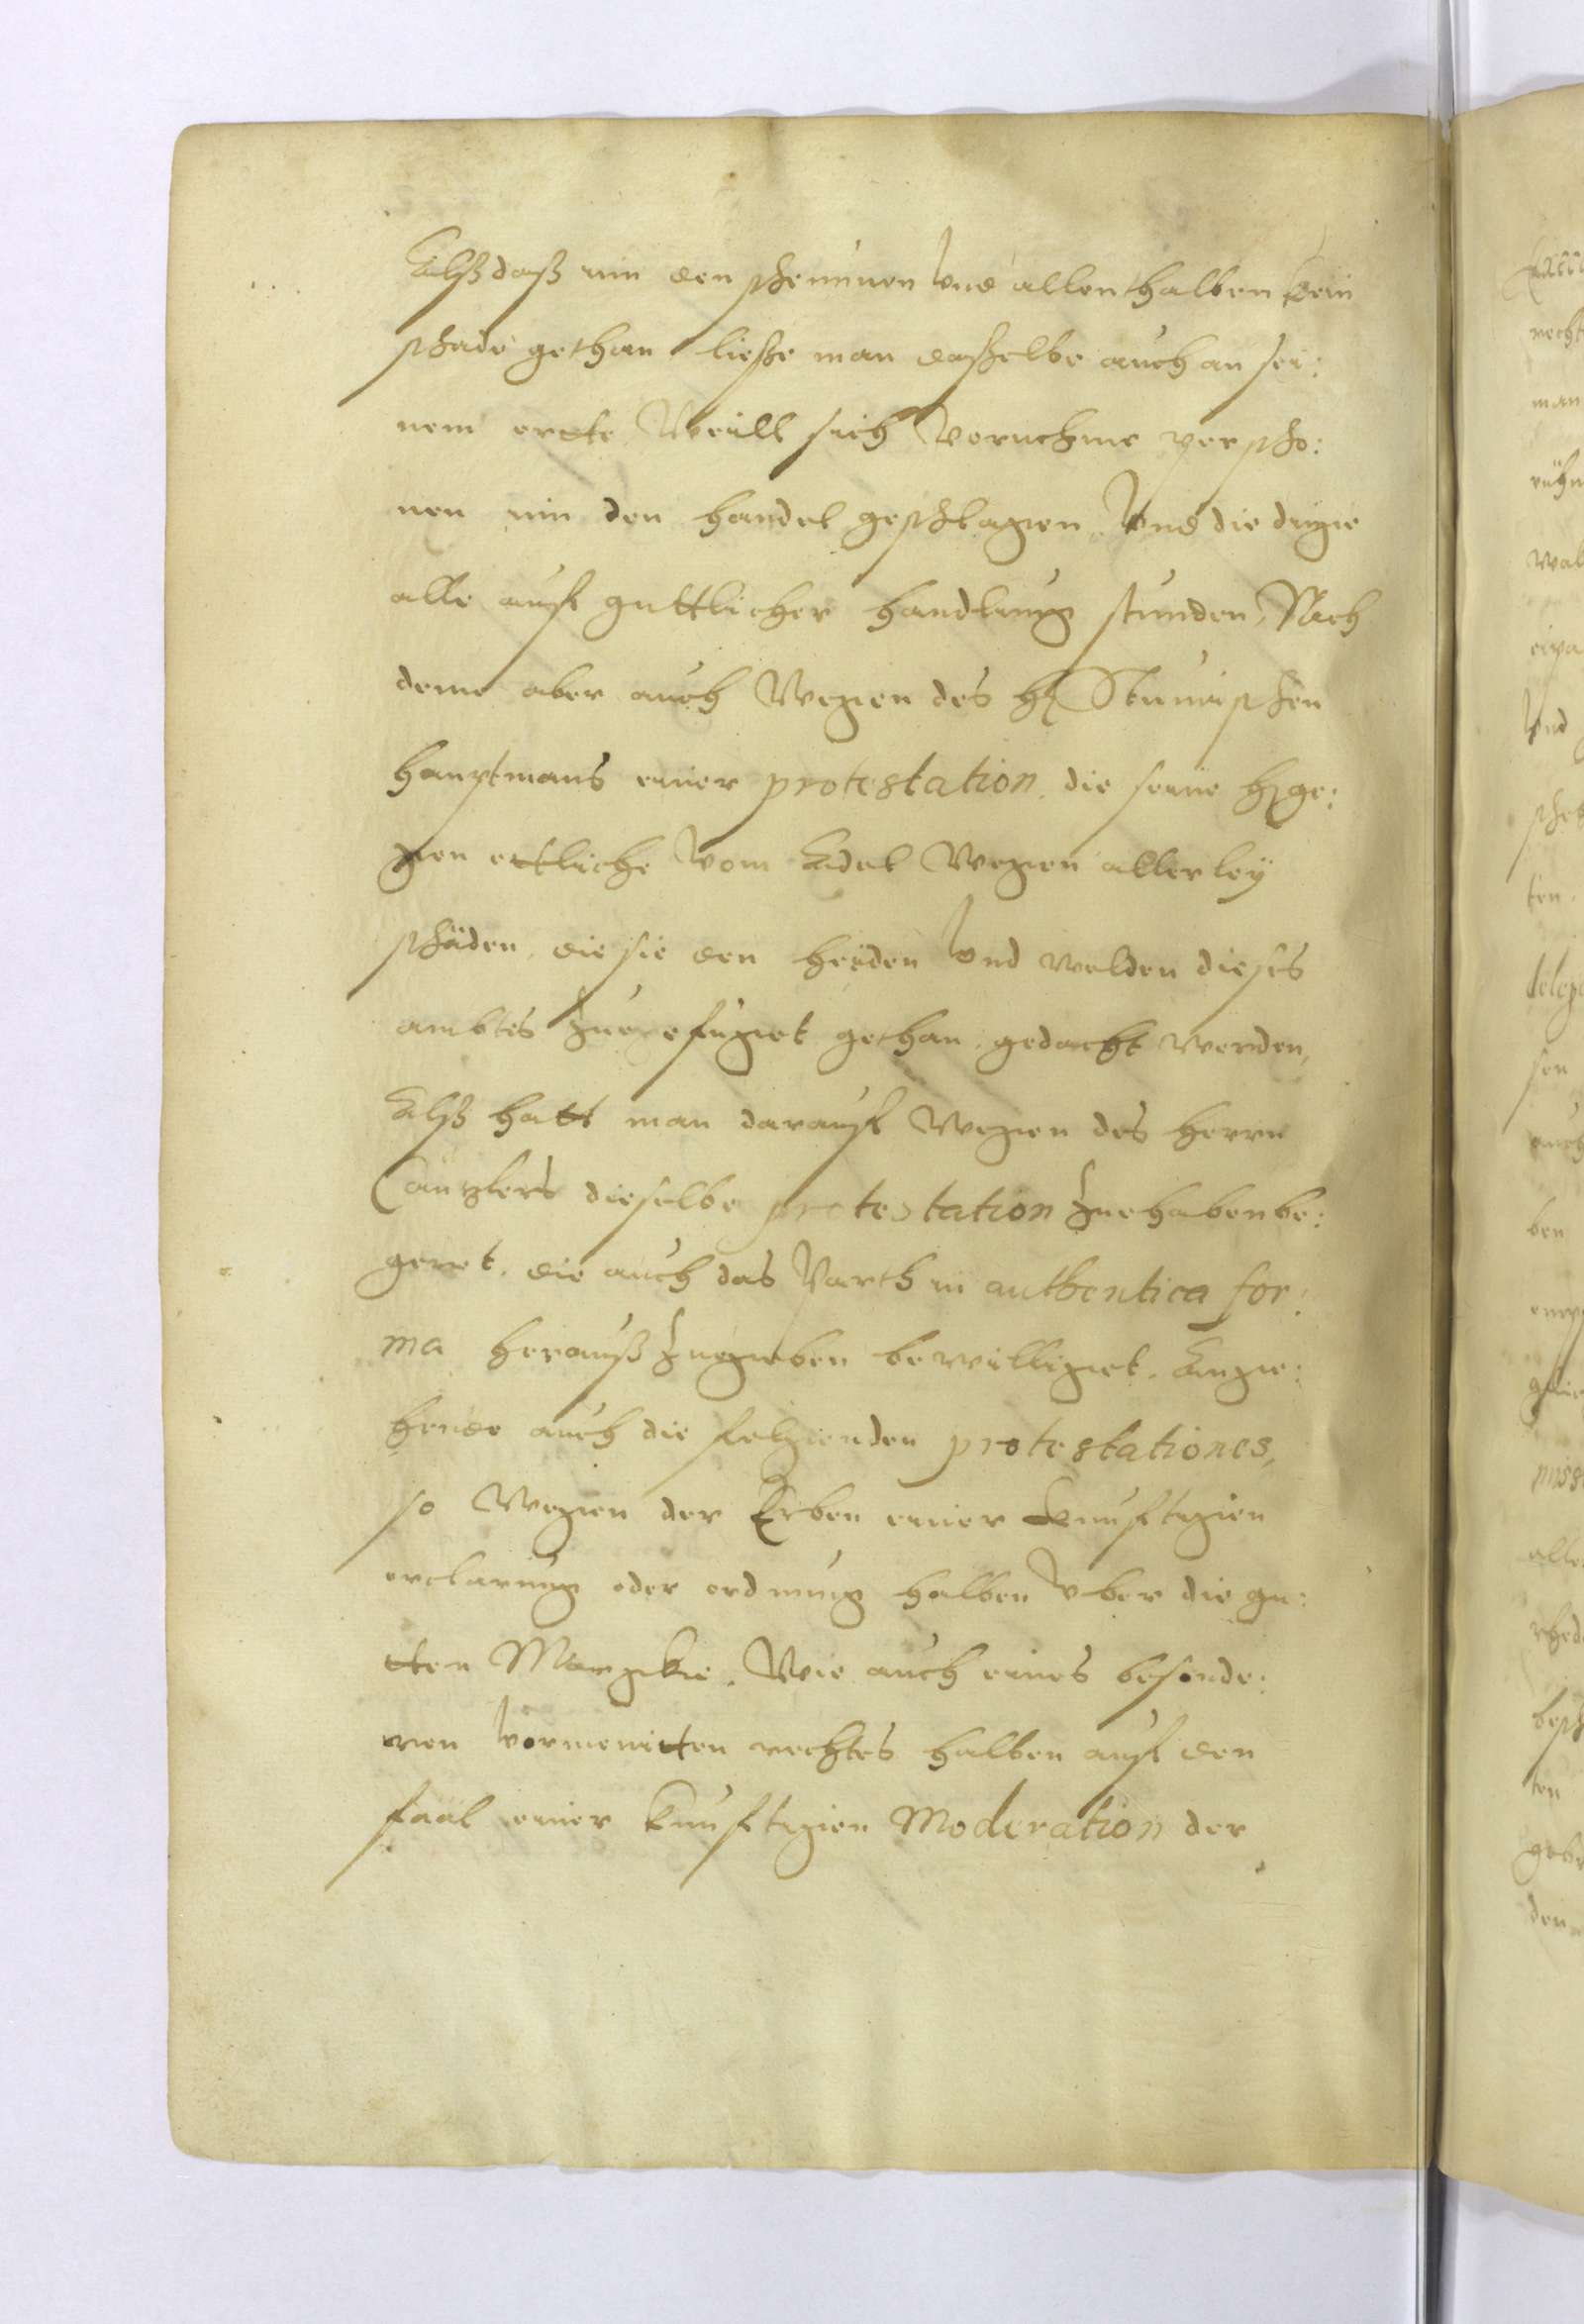 Alß daß nin den scheunen vnd allenthalben kein
schade gethan ließe man daßelbe auch an sei:
nem ortte Weill sich Vornehme perscho:
nen nin den handel geschlagen, vnd die dinge
alle auff guttlicher handlung stunden, Nach
deme aber auch Wegen des H Stumischen
hauptmans einer protestation, die seine H ge:
gen ettliche vom Adel Wegen allerley
schäden, die sie den heiden vnd welden dieses
ambtes Zuegefueget gethan, gedacht werden,
Alß hatt man darauff Wegen des herrn
Canzlers dieselbe protestation Zue haben be:
geret, die auch das Parth in authentica for:
ma herauß Zuegeben bewilliget. Ange:
hende auch die folgenden protestationes,
so Wegen der Erben einer kunfftigen
erclarung oder ordnung halben vber die gu:
tter Margkie. Wie auch eines besonde:
ren vormeintten rechtes halben auff den
faal einer kunfftigen Moderation der